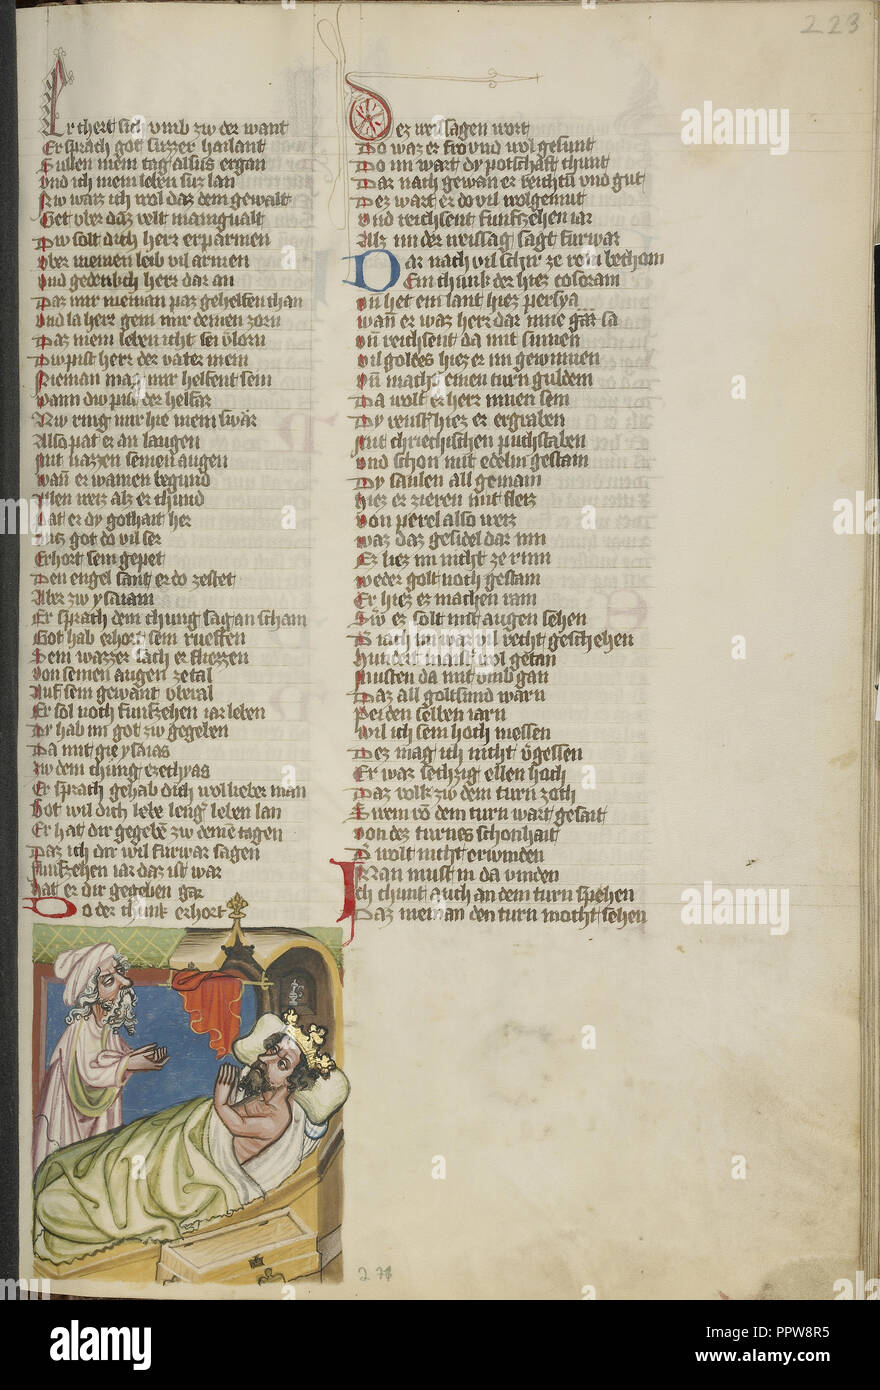 223
Er chert sich vmb zw der want
Er sprach got suzzer hailant
Sullen mein tag alsus ergan
Vnd ich mein leben sus lan
Nw waiz ich wol daz dein gewalt
Get vber daz velt manigualt
Dw solt dich herr erparmen
Vber meinen leib vil armen
Vnd gedench herr dar an
Daz mir nieman paz gehelfen chan
Vnd la herr gein mir deinen zorn
Daz mein leben icht sei v̄lorn
Dw pist herr der vater mein
Nieman mag mir helfent sein
Wann dw pist der helfær
Nw ring mir hie mein swær
Also pat er an laugen
Mit nazzen seinen augen
Wan̄ er wainen begund
alz er chund
Pat er dy gothait her
got do vil ser
Erhort sein gepet
Den engel sant er do zestet
Aber zw ysaiam
Er sprach dem chunig sag an scham
Got hab erhort sein rueffen
Sein wazzer sach er fliezzen
Von seinen augen zetal
Auf sein gewant vberal
Er sol noch funfzehen iar leben
Dy hab im got zw gegeben
Da mit gie ysaias
Zw dem chunig ezechyas
Er sprach gehab dich wol lieber man
Got wil dich lebē leng̾ leben lan
Er hat dir gegebē zw deinē tagen
Daz ich dir wil furwar sagen
Funfzehen iar daz ist war
Hat er dir gegeben gar
Do der chunk erhort
Dez weissagen wort
Do waz er fro vnd wol gesunt
Do im wart dy potschaft chunt
Dar nach gewan er reichtū vnd gut
Dez wart er do vil wolgemut
Vnd reichsent funfzehen iar
Alz im der weissag sagt furwar
Dar nach vil schir ze rom bechom
Ein chunk der hiez cosdram
Vn̄ het ein lant hiez persya
Wan̄ er waz herr dar inne gar sa
Vn̄ reichsent da mit sinnen
Vil goldes hiez er im gewinnen
Vn̄ macht einen turn guldein
Da wolt er herr innen sein
Dy venst hiez er ergraben
Mit chriechischen puchstaben
Vnd schon mit edelm gestain
Dy saulen all gemain
Hiez er zieren mit fleiz
Von perel also weiz
Waz daz gesidel dar inn
Ez liez im nicht ze rinn
Weder golt noch gestain
Er hiez ez machen rain
Sw̄ ez solt mit augen sehen
D̾ iach im war vil recht geschehen
Hundert maist̾ wol getan
Musten da mit vmb gan
Daz all goltsmid warn
Pei den selben iarn
Wil ich sein hoch messen
Dez mag ich nicht v̄gessen
Er waz sechzig ellen hoch
Daz volk zw dem turn zoch
Swem vō dem turn wart gesait
Von dez turnes schonhait
D̾ wolt nicht erwinden
Man must in da vinden
Ich chunt auch an dem turn spehen
Daz nieman den turn mocht sehen
a alamy stock photo
PPW8R5
Image ID: PPW8R5
www.alamy.com